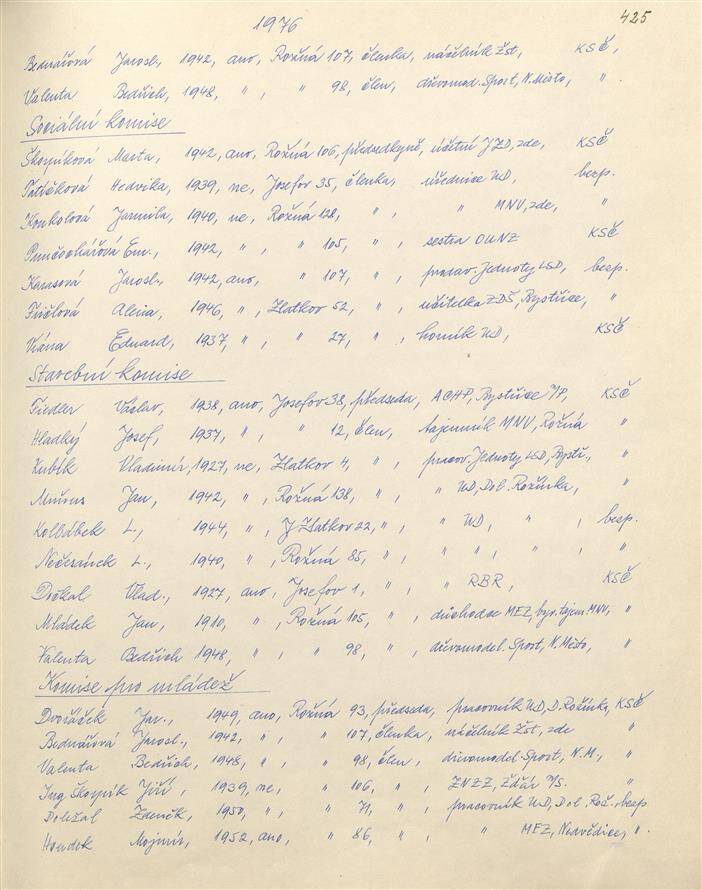 1976
425
Bednářová Jarosl., 1942, ano, Rožná 107, členka, náčelník žst, KSČ,
Valenta Bedřich, 1948, " , " 98, člen, dřevomod. Sport, N. Město, " .
Sociální komise
Škorpíková Marta, 1942, ano, Rožná 106, předsedkyně, účetní JZD, zde, KSČ
Hedvika, 1939, ne, Josefov 35, členka, úřednice UD, besp.
Koukolová Jarmila, 1940, ne, Rožná 128, " , " MNV, zde, "
Punčochářová Em., 1942, " , " 105, " , sestra OUNZ KSČ
Karasová Jarosl., 1942, ano, " 107, " , prodav. Jednoty LSD, besp.
Alena, 1946, " , Zlatkov 52, " , učitelka ZDŠ, Bystřice, "
Vrána Eduard, 1937, " , " 27, " , horník UD, KSČ
Stavební komise
Fiedler Václav, 1938, ano, Josefov 38, předseda, ACHP, Bystřice n/P, KSČ
Hladký Josef, 1937, " , " 12, člen, tajemník MNV, Rožná "
Kubík Vladimír, 1927, ne, Zlatkov 4, " , pracov. Jednoty LSD, Bystř., "
Jan, 1942, " , Rožná 138, " , " UD, Dol. Rožínka, "
Kolbábek L., 1944, " , Zlatkov 22, " , " UD, " , besp.
Nečesánek L., 1940, " , Rožná 85, " , " " , " , "
Dočkal Vlad., 1927, ano, Josefov 1, " , " RBR, KSČ
Mládek Jan, 1910, " , Rožná 105, " , důchodce MEZ, býv. tajem MNV, "
Valenta Bedřich 1948, " , " 98, " , dřevomodel. Sport, N. Město, "
Komise pro mládež
Dvořáček Jar., 1949, ano, Rožná 93, předseda, pracovník UD, D. Rožínka, KSČ
Bednářová Jarosl., 1942, " , " 107, členka, náčelník žst, zde "
Valenta Bedřich, 1948, " , " 98, člen, dřevomodel. Sport, N.M., "
Ing Škorpík Jiří, 1939, ne, " 106, " , ZNZZ, Žďár n/S. "
Doležal Zdeněk, 1950, " , " 71, " , pracovník UD, Dol. Rož. besp
Houdek Mojmír, 1952, ano, " 86, " , " MEZ, Nedvědice, " .